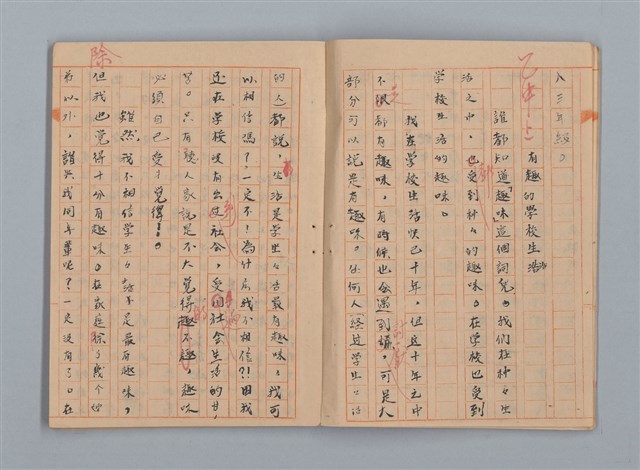 乙中上
有趣的學校生活
誰都知道「趣味」這個詞兒。我们在种々生
活之中,也受到种々的趣味。在学校也受到
学校生活的趣味。
我在学校生活快已十年,但这十年之中
不很都有趣味,有時候也会遇到讨厭。可是大
部分可以說是有趣味。任何人經过学生生活
的人都說,生活是学生生活最有趣味,我可
以相信嗎?一定不!為什么我不相信?!因我
还在学校沒有出社会,受
社会生活的
。只有聽人家說是不大覺得趣不趣,趣味
必須自己受才覚得!。
雖然我不相信学生生活是最有趣味,
但我也覚得十分有趣味。在家庭除了幾个
弟以外,誰與我同年輩呢?一定沒有了。在
除